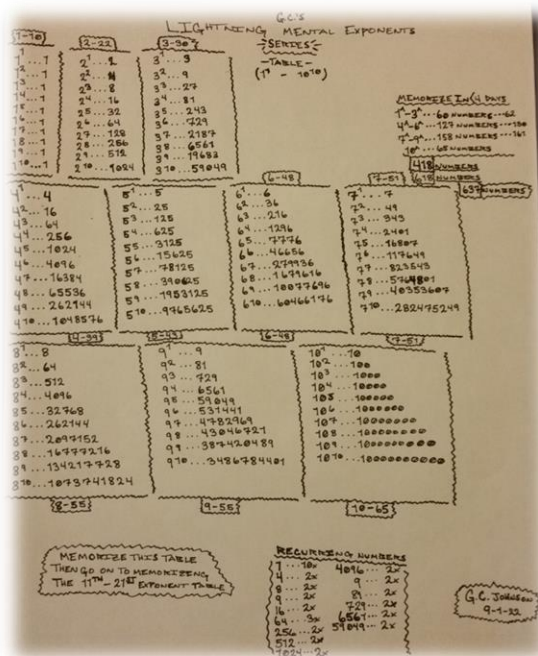 G.C.'s
LIGHTNING MENTAL EXPONENTS
-SERIES-
-TABLE-
(1¹ - 10¹⁰)
1-10
1¹...1
1²...1
1³...1
1⁴...1
1⁵...1
1⁶...1
1⁷...1
1⁸...1
1⁹...1
1¹⁰...1
2-22
2¹...2
2²...4
2³...8
2⁴...16
2⁵...32
2⁶...64
2⁷...128
2⁸...256
2⁹...512
2¹⁰...1024
3-30
3¹...3
3²...9
3³...27
3⁴...81
3⁵...243
3⁶...729
3⁷...2187
3⁸...6561
3⁹...19683
3¹⁰...59049
MEMORIZE IN 4 DAYS
1^-3^...60 NUMBERS...62
4^-6^...127 NUMBERS...130
7^-9^...158 NUMBERS...161
10^...65 NUMBERS
418 NUMBERS
618 NUMBERS
637 NUMBERS
4¹...4
4²...16
4³...64
4⁴...256
4⁵...1024
4⁶...4096
4⁷...16384
4⁸...65536
4⁹...262144
4¹⁰...1048576
4-39
5¹...5
5²...25
5³...125
5⁴...625
5⁵...3125
5⁶...15625
5⁷...78125
5⁸...390625
5⁹...1953125
5¹⁰...9765625
5-43
6-48
6¹...6
6²...36
6³...216
6⁴...1296
6⁵...7776
6⁶...46656
6⁷...279936
6⁸...1679616
6⁹...10077696
6¹⁰...60466176
6-48
7-51
7¹...7
7²...49
7³...343
7⁴...2401
7⁵...16807
7⁶...117649
7⁷...823543
7⁸...5764801
7⁹...40353607
7¹⁰...282475249
7-51
8¹...8
8²...64
8³...512
8⁴...4096
8⁵...32768
8⁶...262144
8⁷...2097152
8⁸...16777216
8⁹...134217728
8¹⁰...1073741824
8-55
9¹...9
9²...81
9³...729
9⁴...6561
9⁵...59049
9⁶...531441
9⁷...4782969
9⁸...43046721
9⁹...387420489
9¹⁰...3486784401
9-55
10¹...10
10²...100
10³...1000
10⁴...10000
10⁵...100000
10⁶...1000000
10⁷...10000000
10⁸...100000000
10⁹...1000000000
10¹⁰...10000000000
10-65
MEMORIZE THIS TABLE
THEN GO ON TO MEMORIZING
THE 11TH-21ST EXPONENT TABLE
RECURRING NUMBERS
1...10x 4096...2x
4...2x 9...2x
8...2x 81...2x
9...2x 729...2x
16...2x 6561...2x
64...3x 59049...2x
256...2x
512...2x
1024...2x
G.C. JOHNSON
9-1-22